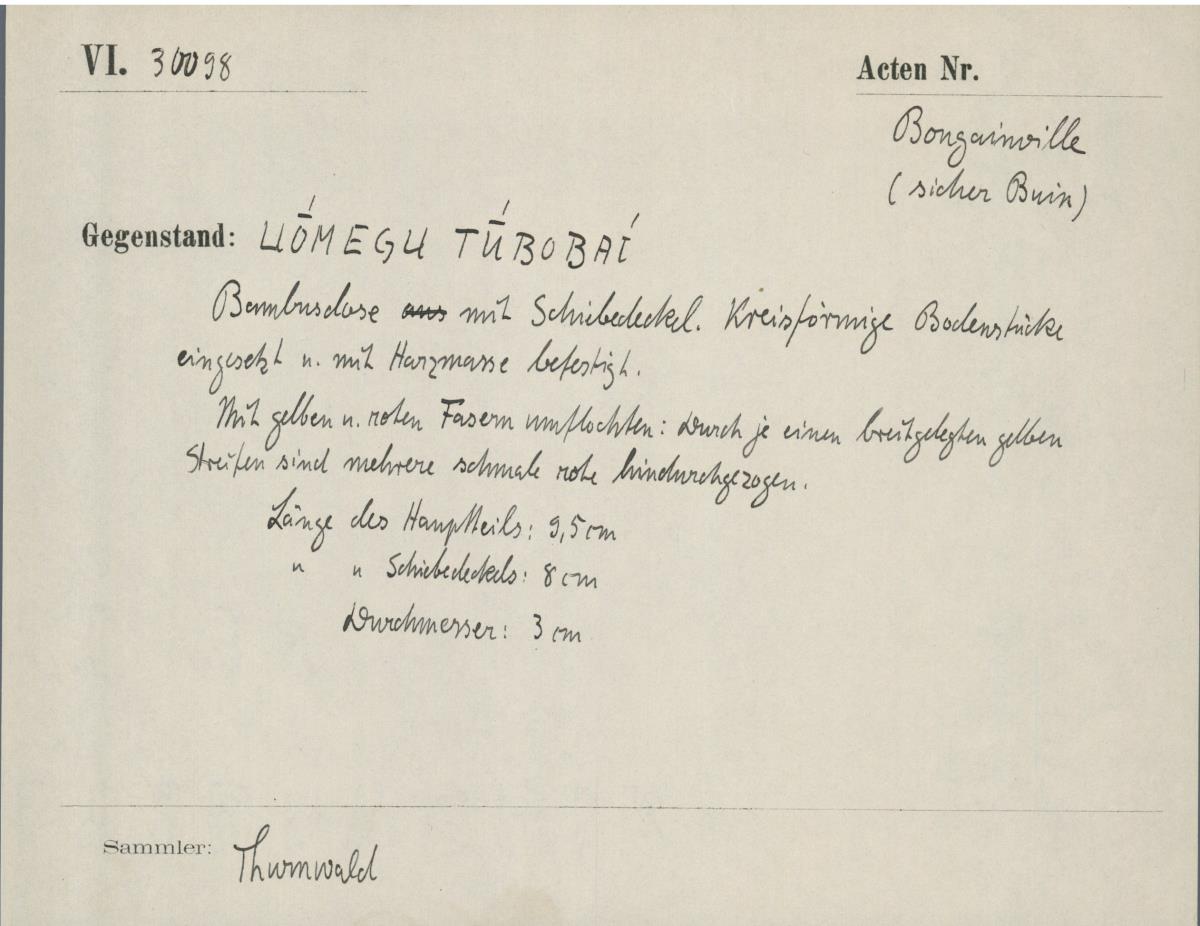 VI. 30098
Acten Nr.
Bougainville
(sicher Buin)
Gegenstand: UṒMEGU TŪ́BOBAÍ
Bambusdose aus mit Schiebedeckel. Kreisförmige Bodenstücke
eingesetzt u. mit Harzmasse befestigt.
Mit gelben u. roten Fasern umflochten: Durch je einen breitgelegten gelben
Streifen sind mehrere schmale rote hindurchgezogen.
Länge des Hauptteils: 9,5 cm
" " Schiebedeckels: 8 cm
Durchmesser: 3 cm
Sammler: Thurnwald